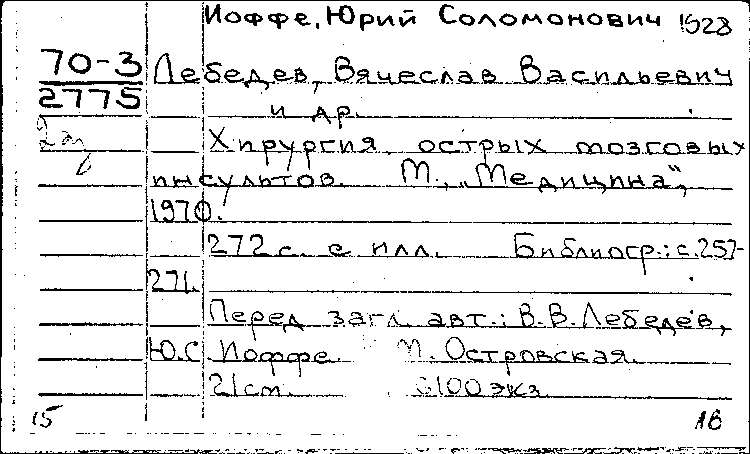 Иоффе, Юрий Соломонович 1928
70-3
2775
Лебедев, Вячеслав Васильевич
и др.
Хирургия острых мозговых
инсультов. М., „Медицина",
1970.
272 с. с илл. Библиогр.: с. 257-
271.
Перед загл. авт.: В.В. Лебедев,
Ю.С. Иоффе. И. Островская.
21 см. 6100 экз
15 18